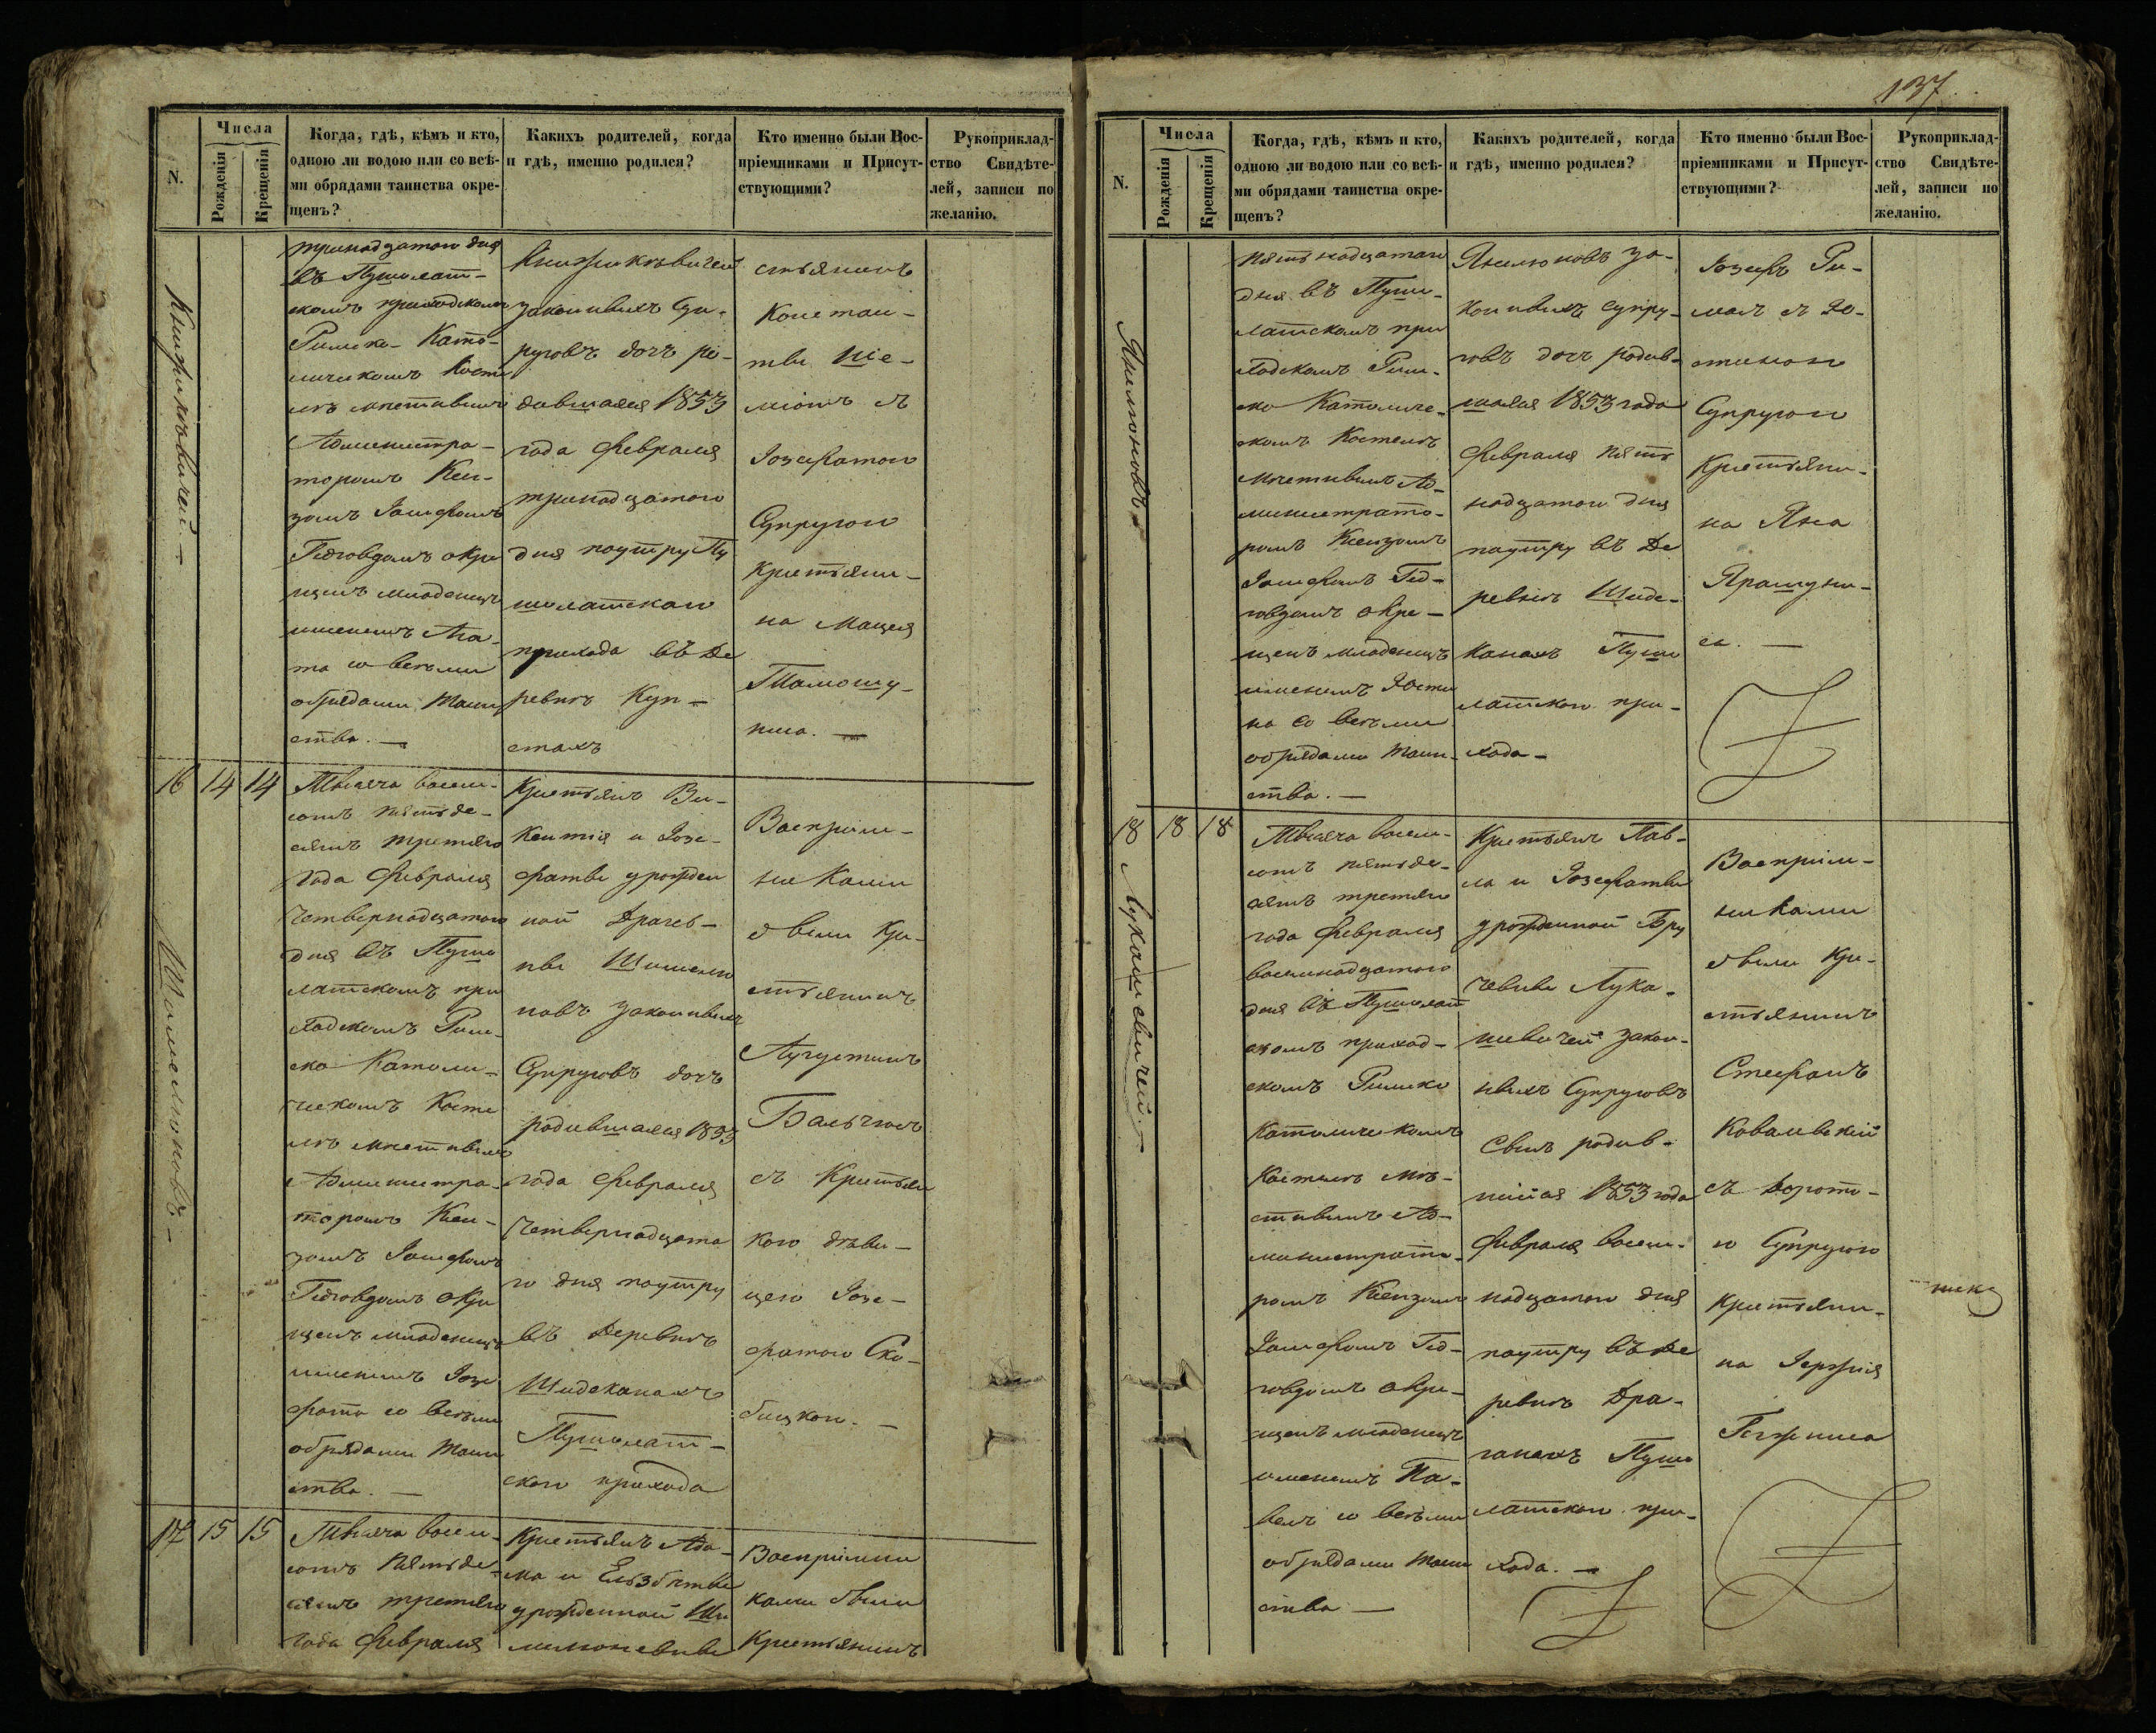 137
N.
Числа
Рожденія
Крещенія
Когда, гдѣ, кѣмъ и кто,
одною ли водою или со всѣ-
ми обрядами таинства окре-
щенъ?
Какихъ родителей, когда
и гдѣ, именно родился?
Кто именно были Вос-
пріемниками и Присут-
ствующими?
Рукоприклад-
ство Свидѣте-
лей, записи по
желанію.
тринадзатого дня
въ Пушолат-
скомъ приходскомъ
Римско-Като-
личискомъ Косте
лѣ мѣстнымъ
Администра-
торомъ Ксен-
зомъ Іосифомъ
окре
щенъ младенецъ
именемъ Ага-
та со всѣми
обрядами Таин
ства. —
законныхъ Су-
пруговъ дочь ро-
дившаяся 1853
года Февраля
тринадцатого
дня поутру Пу
шолатского
прихода въ Де
ревнѣ Куп-
стахъ
стьянинъ
Констан-
ты
съ
Іозефатою
Супругою
Крестьяни-
на Мацея
Тамошу-
ниса. —
16 14 14
Тысяча восем-
сотъ пятьде-
сятъ третяго
года Февраля
Четвернадцатого
дня въ Пушо
латскомъ при
ходскомъ Рим-
ско Католи-
ческомъ Косте
лѣ мѣстнымъ
Администра-
торомъ Ксен-
зомъ Іосифомъ
окре
щенъ младенецъ
именемъ Іозе
фата со всѣми
обрядами Таин
ства. —
Крестьянъ Ви-
кентія и Іозе-
фаты урожден
ной
новъ законныхъ
Супруговъ дочь
родившаяся 1853
года Февраля
Четвернадцата
го дня поутру
въ Деревнѣ
Шидеканахъ
Пушолат-
ского прихода
Воспріем-
никами
были Кре-
стьянинъ
Аугустинъ
съ Крестьян
кою дѣви-
цею Іозе-
фатою Ско-
17 15 15
Тысяча восем-
сотъ Пятьде-
сятъ третяго
года Февраля
Крестьянъ Ада-
ма и Ельзбеты
урожденной Ши
Воспріемни
ками были
Крестьянинъ
N.
Числа
Рожденія
Крещенія
Когда, гдѣ, кѣмъ и кто,
одною ли водою или со всѣ-
ми обрядами таинства окре-
щенъ?
Какихъ родителей, когда
и гдѣ, именно родился?
Кто именно были Вос-
пріемниками и Присут-
ствующими?
Рукоприклад-
ство Свидѣте-
лей, записи по
желанію.
пятьнадцатаго
дня въ Пушо-
латскомъ при
ходскомъ Рим-
ско Католиче-
скомъ Костелѣ
мѣстнымъ Ад-
министрато-
ромъ Ксензомъ
Іосифомъ
окре-
щенъ младенецъ
именемъ Юсти
на со всѣми
обрядами Таин-
ства. —
за-
конныхъ супру-
говъ дочь родив-
шаяся 1853 года
Февраля пять
надцатого дня
поутру въ Де
ревнѣ Шиде-
канахъ Пушо
латского при-
хода —
Іозефъ
съ Ю-
стиною
Супругою
Крестьяни-
на Яна
18 18 18
Лукашевичей. —
Тысяча восем-
сотъ пятьде-
сятъ третяго
года Февраля
восемнадцатого
дня въ Пушолат
скомъ приход-
скомъ Римско
Католическомъ
Костелѣ мѣ-
стнымъ Ад-
министрато-
ромъ Ксензомъ
Іосифомъ
окре-
щенъ младенецъ
именемъ Па-
велъ со всѣми
обрядами Таин
ства —
Крестьянъ Пав-
ла и Іозефаты
урожденной
Лука-
шевичей закон-
ныхъ Супруговъ
Сынъ родив-
шійся 1853 года
Февраля восем-
надцатого дня
поутру въ Де
ревнѣ Дра-
ганахъ Пушо
латского при-
хода. —
Воспріем-
никами
были Кре-
стьянинъ
Стефанъ
Ковалевскій
съ Дорото-
ю Супругою
Крестьяни-
на Іержія